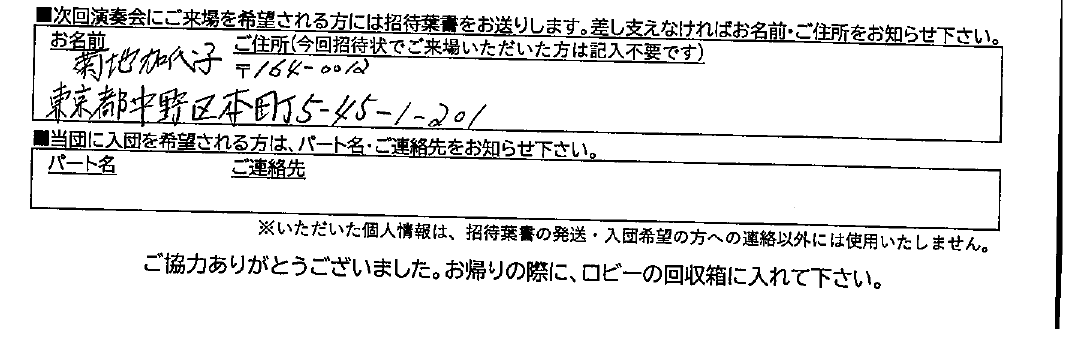 ■次回演奏会にご来場を希望される方には招待葉書をお送りします。差し支えなければお名前・ご住所をお知らせ下さい。
お名前 ご住所(今回招待状でご来場いただいた方は記入不要です)
菊地加代子 〒164-0012
東京都中野区本町5-45-1-201
■当団に入団を希望される方は、パート名・ご連絡先をお知らせ下さい。
パート名 ご連絡先
※いただいた個人情報は、招待葉書の発送・入団希望の方への連絡以外には使用いたしません。
ご協力ありがとうございました。お帰りの際に、ロビーの回収箱に入れて下さい。